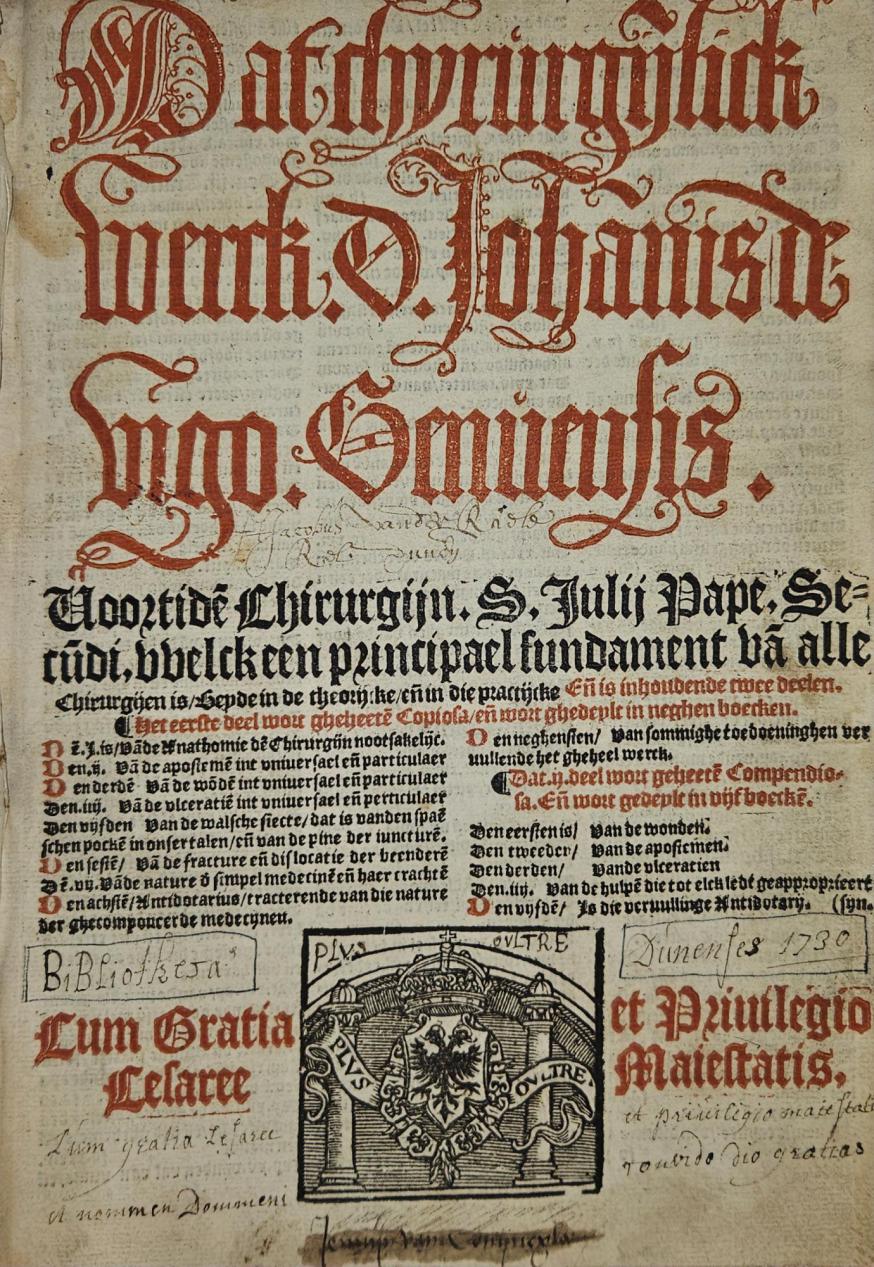 Dat chyrurgijlick
werck. D. Johānis de
Vigo. Genuensis.
Jacobus vander
Voortidē Chirurgijn. S. Julij Pape. Se-
cūdi, vvelck een principael fundament vā alle
Chirurgijen is/Beyde in de theorijcke/eñ in die practijcke Eñ is inhoudende twee deelen.
¶Het eerste deel wort gheheetē Copiosa/eñ wort ghedeylt in neghen boecken.
Dē.J.is/Vāde Anathomie dē Chirurgijn nootsakelijc.
Den.ij. Vā de apostemē int vniuersael eñ particulaer
Den derdē Vā de wōdē int vniuersael eñ particulaer
Den.iiij. Vā de vlceratiē int vniuersael eñ perticulaer
Den vijfden Van de walsche siecte/dat is vanden spaē
schen pockē in onser talen/eñ van de pine der iuncturē.
Den sestē/ Vā de fracture eñ dislocatie der beenderē
Dē.vij.Vāde nature ð simpel medecinē eñ haer crachtē
Den achstē/Antidotarius/tracterende van die nature
der ghecomponeerde medecynen.
Den neghensten/ van sommighe toedoeninghen ver
uullende het gheheel werck.
¶Dat.ij.deel wort geheetē Compendio-
sa. Eñ wort gedeylt in vijf boeckē.
Den eersten is/ Van de wonden.
Den tweeden/ Van de apostemen.
Den derden/ Vande vlceratien
Den.iiij. Van de hulpē die tot elck ledt geapproprieert
Den vijfdē/ Is die veruullinge Antidotarij. (syn.
BiBLiotheca
PLVS OVLTRE
Dunenses 1730
Cum Gratia
Cesaree
PLVS OVLTRE
et Priuilegio
Maiestatis.
Cum gratia Cesaree
et nommen Dommeni
et priuiligio maiestati
dio gratias